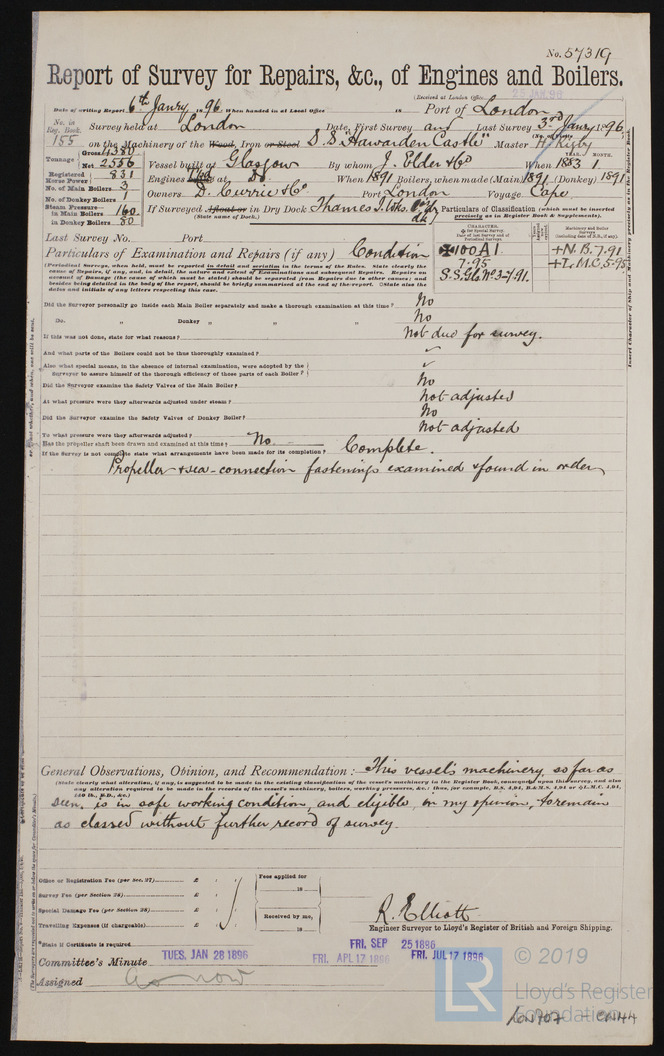 No. 57319
Report of Survey for Repairs, &c., of Engines and Boilers.
(Received at London Office 28 JAN 96
Date of writing Report 6th Janry 1896 When handed in at Local Office 18 Port of London
No. in Reg. Book. Survey held at London Date, First Survey and Last Survey 3rd Janry 1896
155 on the Machinery of the Wood, Iron or Steel S.S. "Hawarden Castle" Master H. Rigby
Tonnage Gross 4380
Net 2556 Vessel built at Glasgow By whom J. Elder & Co When 1883 1
Registered Horse Power 831 Engines at Do When 1891 Boilers, when made (Main) 1891 (Donkey) 1891
No. of Main Boilers 3
No. of Donkey Boilers 1 Owners D. Currie & Co Port London Voyage Cape
Steam Pressure in Main Boilers 160 If Surveyed Afloat or in Dry Dock Thames I. Wks.
in Donkey Boilers 80 (State name of Dock.)
Particulars of Classification (which must be inserted precisely as in Register Book & Supplements).
Last Survey No. Port
Particulars of Examination and Repairs (if any) Condition
✠100A1 +N.B. 7.91
7.95 +L.M.C. 5.95
S.S. Glo. No. 3-7.91.
Did the Surveyor personally go inside each Main Boiler separately and make a thorough examination at this time? No
Do. „ Donkey „ „ „ No
If this was not done, state for what reasons? Not due for survey.
And what parts of the Boilers could not be thoroughly examined?
Also what special means, in the absence of internal examination, were adopted by the
Surveyor to assure himself of the thorough efficiency of those parts of each Boiler?
Did the Surveyor examine the Safety Valves of the Main Boiler? No
At what pressure were they afterwards adjusted under steam? Not adjusted
Did the Surveyor examine the Safety Valves of Donkey Boiler? No
To what pressure were they afterwards adjusted? Not adjusted
Has the propeller shaft been drawn and examined at this time? No
If the Survey is not complete state what arrangements have been made for its completion? Complete.
Propeller & sea-connection fastenings examined & found in order
General Observations, Opinion, and Recommendation:— This vessel's machinery, so far as
(State clearly what alteration, if any, is suggested to be made in the existing classification of the vessel's machinery in the Register Book, consequent upon this survey, and also
any alteration required to be made in the records of the vessel's machinery, boilers, working pressures, &c.; thus, for example, B.S. 4,94, B.&M.S. 4,94 or L.M.C. 4,94,
140 lb., N.D., &c.)
seen, is in safe working condition, and eligible, in my opinion, to remain
as classed without further record of survey.
Office or Registration Fee (per Sec. 27) £ : : Fees applied for
Survey Fee (per Section 28) £ : : 18
Special Damage Fee (per Section 28) £ : : Received by me,
Travelling Expenses (if chargeable) £ : : 18
R. Elliott
Engineer Surveyor to Lloyd's Register of British and Foreign Shipping.
*State if Certificate is required
Committee's Minute TUES. JAN 28 1896 FRI. SEP 25 1896
FRI. APL 17 1896 FRI. JUL 17 1896
Assigned As now
LR © 2019
Lloyd's Register
Foundation